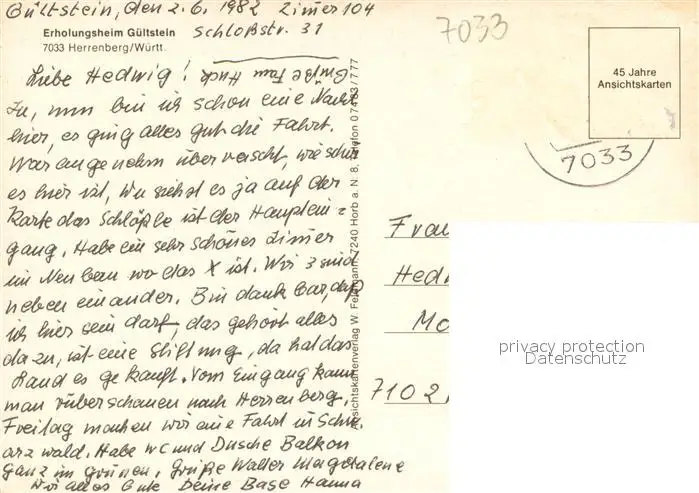 Gültstein, den 2.6.1982 Zimer 104
Schloßstr. 31
Erholungsheim Gültstein
7033 Herrenberg/Württ.
7033
45 Jahre
Ansichtskarten
7033
Grüße Fam Huck
Liebe Hedwig!
Zu, nun bin ich schon eine Nacht
hier, es ging alles gut die Fahrt.
War angenehm überrascht, wie schön
es hier ist, Du siehst es ja auf der
Karte das Schlößle ist der Hauptein=
gang. Habe ein sehr schönes Zimer
im Neubau wo das X ist. Wir 3 sind
neben einander. Bin dankbar, daß
ich hier sein darf, das gehört alles
dazu, ist eine Stiftung, da hat das
Land es gekauft. Vom Eingang kann
man rüberschauen nach Herrenberg.
Freitag machen wir eine Fahrt in Schw.
arzwald. Habe WC und Dusche Balkon
Ganz im grünen. Grüße Walter Magdalene
Wir alles Gute Deine Base Hanna
Ansichtskartenverlag W. 7240 Horb a. N. 8, Telefon 07483/777
Frau
Hed
Mo
7102,
privacy protection
Datenschutz